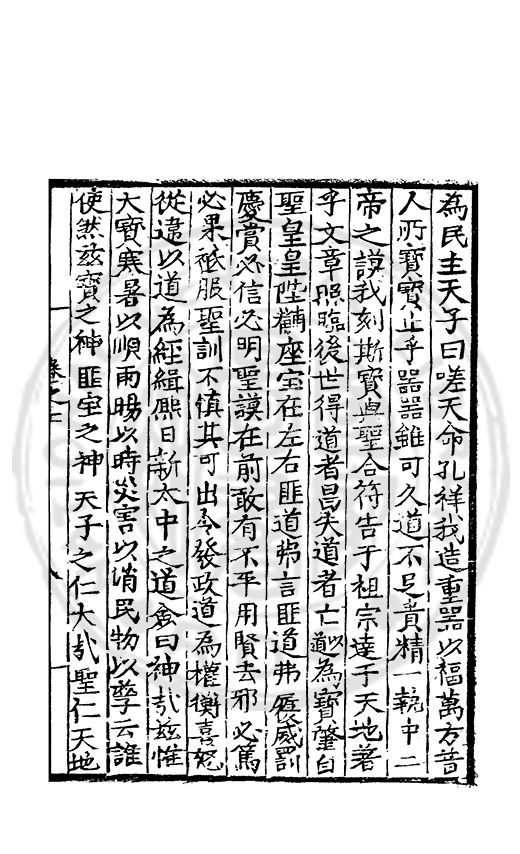 為民主天子曰嗟天命孔祥我造重器以福萬方昔
人所寶寶止乎器器雖可久道不足貴精一執中二
帝之謨我刻斯寶與聖合符告于祖宗達于天地著
乎文章照臨後世得道者昌失道者亡以道為寶肇自
聖皇皇陛黼座寶在左右匪道弗言匪道弗履威罰
慶賞必信必明聖謨在前敢有不平用賢去邪必篤
必果祗服聖訓不慎其可出令發政道為權衡喜怒
從違以道為經緝熙日新太中之道僉曰神哉茲惟
大寶寒暑以順雨暘以時災害以消民物以孳云誰
使然茲寶之神匪寶之神天子之仁大哉聖仁天地
卷之二